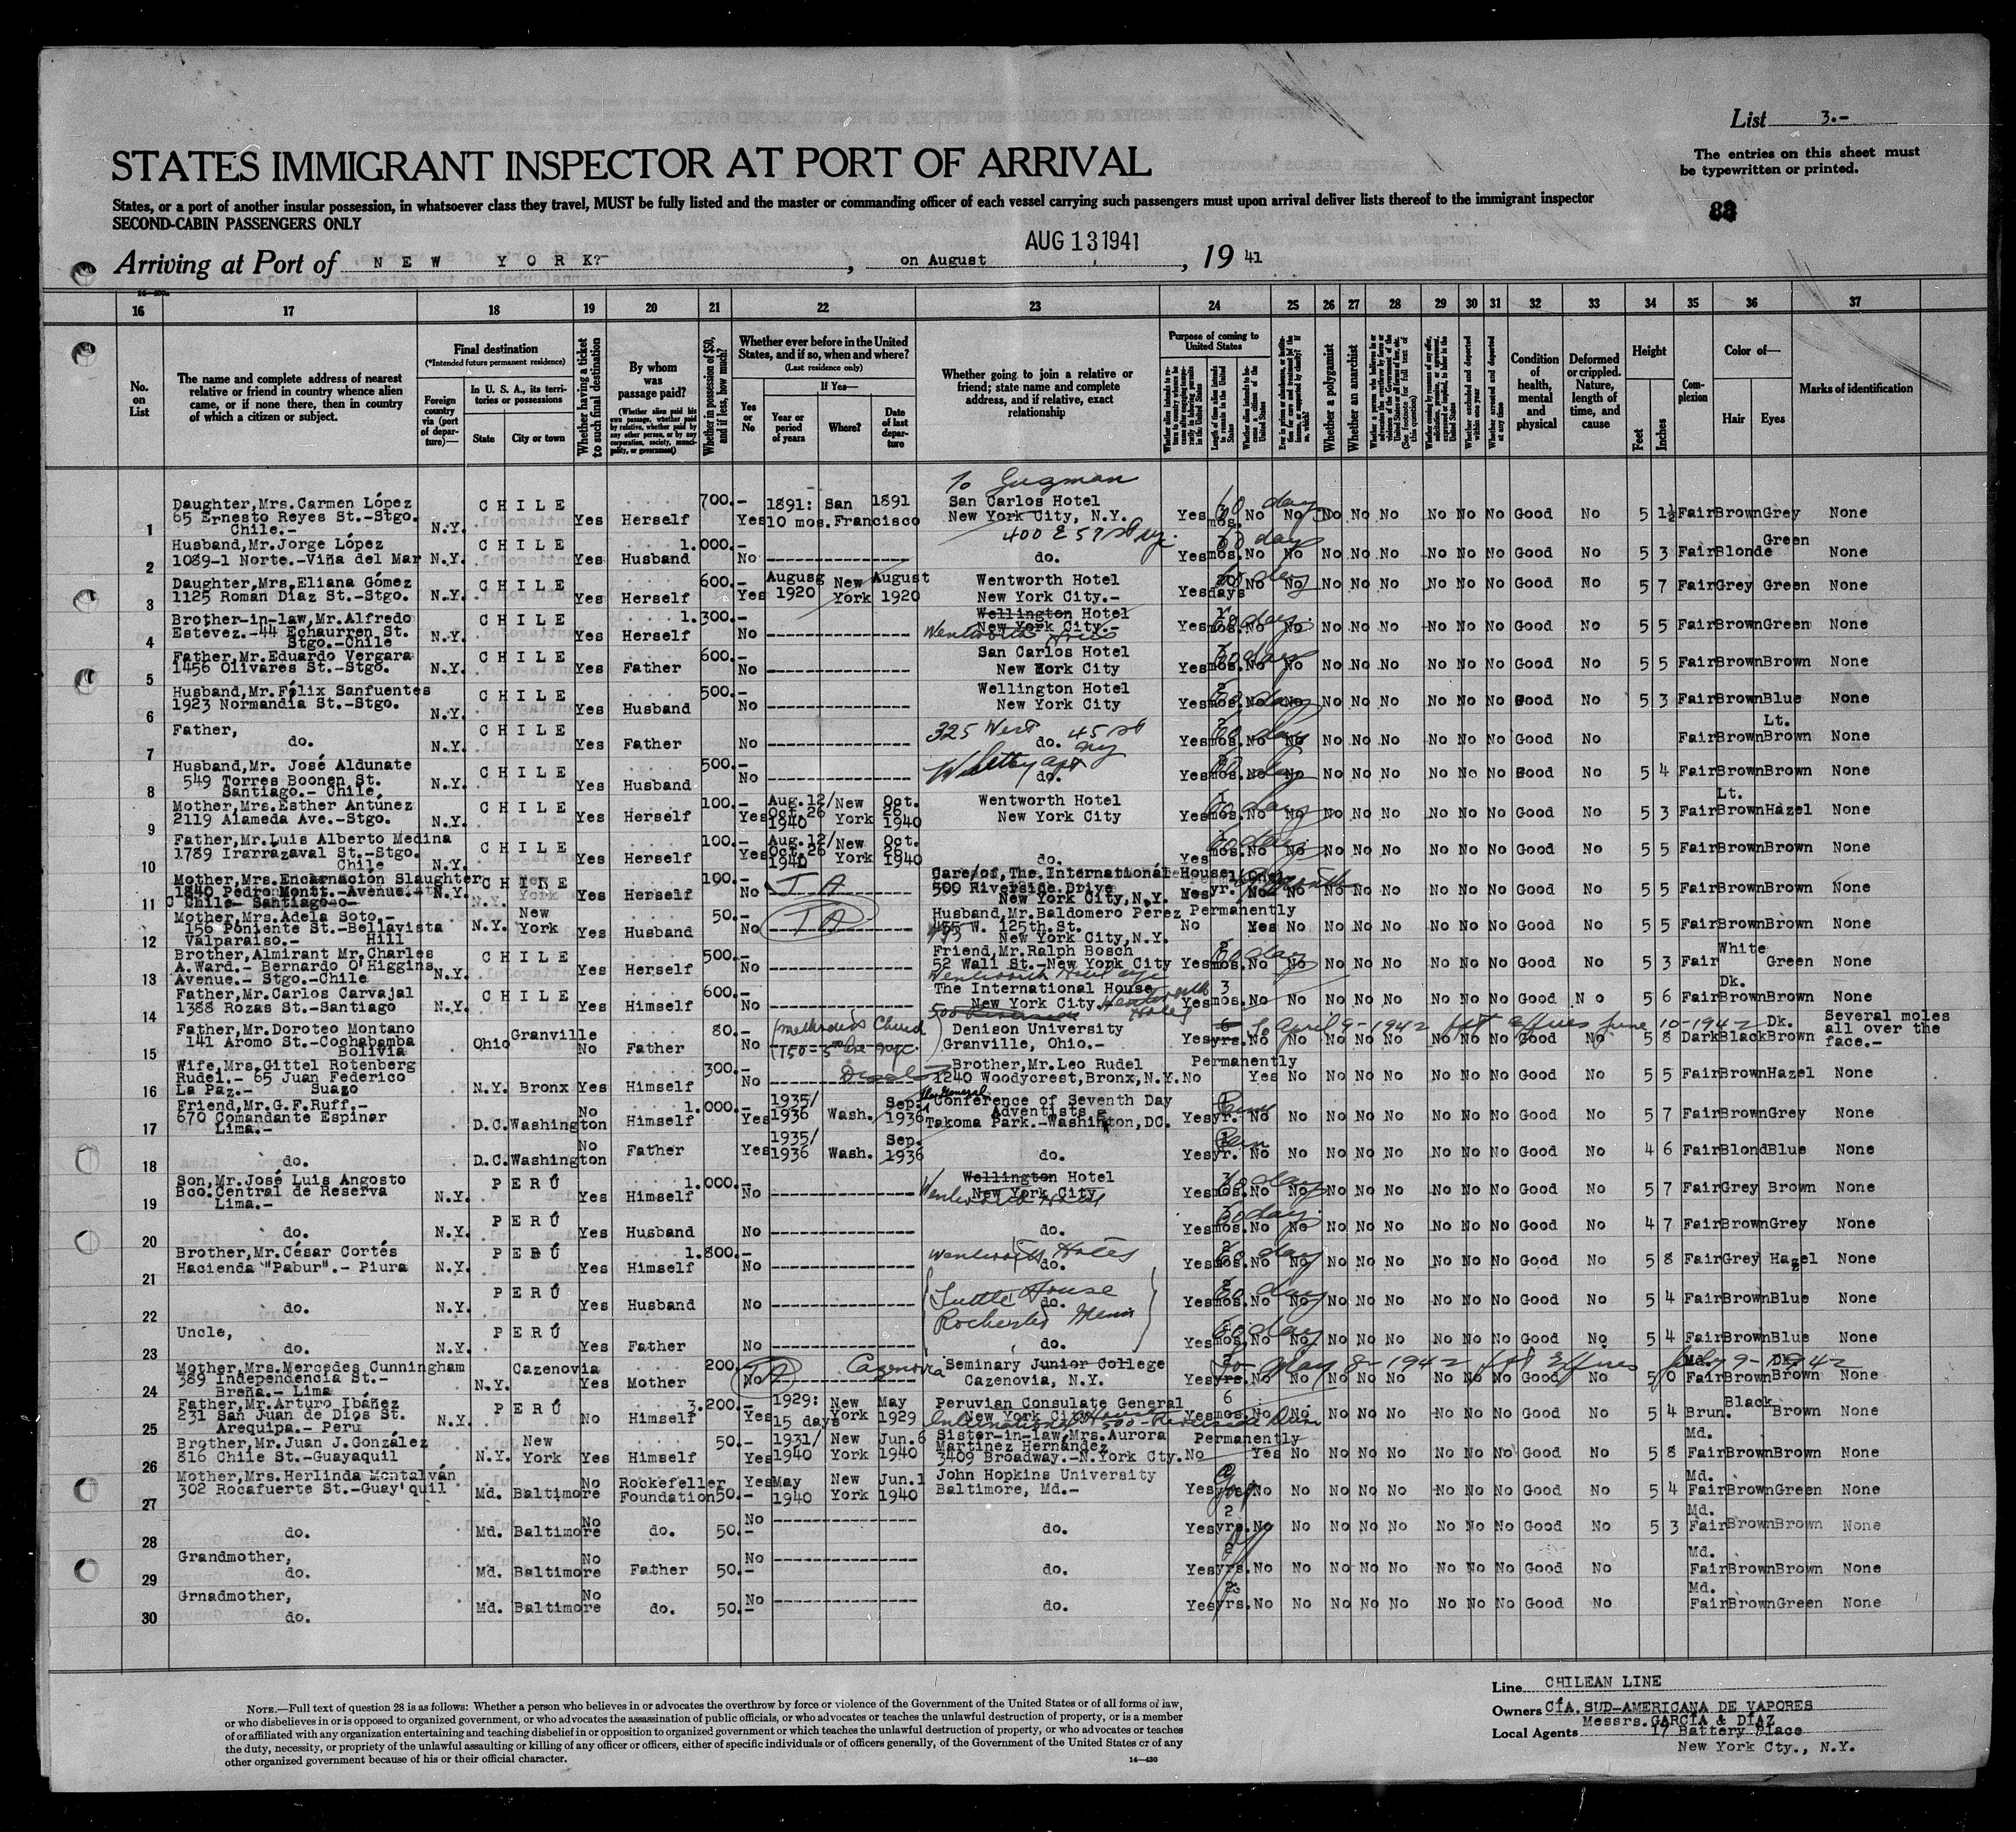 List 3.-
STATES IMMIGRANT INSPECTOR AT PORT OF ARRIVAL
The entries on this sheet must
be typewritten or printed.
States, or a port of another insular possession, in whatsoever class they travel, MUST be fully listed and the master or commanding officer of each vessel carrying such passengers must upon arrival deliver lists thereof to the immigrant inspector
SECOND-CABIN PASSENGERS ONLY
AUG 13 1941
Arriving at Port of N E W Y O R K?- , on August , 19 41
16 17 18 19 20 21 22 23 24 25 26 27 28 29 30 31 32 33 34 35 36 37
No. on List
The name and complete address of nearest relative or friend in country whence alien came, or if none there, then in country of which a citizen or subject.
Final destination
(*Intended future permanent residence)
Foreign country via (port of departure)—
In U. S. A., its territories or possessions
State
City or town
Whether having a ticket to such final destination
By whom was passage paid?
(Whether alien paid his own passage, whether paid by relative, whether paid by any other person, or by any corporation, society, municipality, or government)
Whether in possession of $50, and if less, how much?
Whether ever before in the United States, and if so, when and where?
(Last residence only)
Yes or No
If Yes—
Year or period of years
Where?
Date of last departure
Whether going to join a relative or friend; state name and complete address, and if relative, exact relationship
Purpose of coming to United States
Length of time alien intends to remain in the United States
Whether alien intends to become a citizen of the United States
Whether a polygamist
Whether an anarchist
Whether excluded and deported within one year
Whether arrested and deported at any time
Condition of health, mental and physical
Deformed or crippled. Nature, length of time, and cause
Height
Feet
Inches
Complexion
Color of—
Hair
Eyes
Marks of identification
To Guzman
1 Daughter,Mrs.Carmen López 65 Ernesto Reyes St.-Stgo. Chile.- N.Y. C H I L E Yes Herself 700.- Yes 1891: 10 mos. San Francisco 1891 San Carlos Hotel New York City, N.Y. Yes mos. 60 days No No No No No No No No Good No 5 1½ Fair Brown Grey None
400 E 57 St
2 Husband,Mr.Jorge López 1089-1 Norte.-Viña del Mar N.Y. C H I L E Yes Husband 1.000.- No do. Yes mos. days No No No No No No No No Good No 5 3 Fair Blonde Green None
3 Daughter,Mrs,Eliana Gómez 1125 Roman Diaz St.-Stgo. N.Y. C H I L E Yes Herself 600.- Yes Augusg 1920 New York August 1920 Wentworth Hotel New York City.- Yes days No No No No No No No No Good No 5 7 Fair Grey Green None
4 Brother-in-law,Mr.Alfredo Estevez.-44 Echaurren St. Stgo.-Chile N.Y. C H I L E Yes Herself 1.300.- No Wellington Hotel New York City.- Yes mos. days No No No No No No No No Good No 5 5 Fair Brown Green None
5 Father,Mr.Eduardo Vergara 1456 Olivares St.-Stgo. N.Y. C H I L E Yes Father 600.- No San Carlos Hotel New York City Yes mos. days No No No No No No No No Good No 5 5 Fair Brown Brown None
6 Husband,Mr.Félix Sanfuentes 1923 Normandia St.-Stgo. N.Y. C H I L E Yes Husband 500.- No Wellington Hotel New York City Yes mos. days No No No No No No No No Good No 5 3 Fair Brown Blue None
325 West 45 St NY
7 Father, do. N.Y. C H I L E Yes Father No do. Yes mos. days No No No No No No No No Good No Fair Brown Lt. Brown None
8 Husband,Mr. José Aldunate 549 Torres Boonen St. Santiago.- Chile, N.Y. C H I L E Yes Husband 500.- No do. Yes mos. No No No No No No No No Good No 5 4 Fair Brown Brown None
9 Mother,Mrs.Esther Antunez 2119 Alameda Ave.-Stgo. N.Y. C H I L E Yes Herself 100.- Yes Aug.12/ Oct.26 1940 New York Oct. 26 1940 Wentworth Hotel New York City Yes mos. 60 days No No No No No No No No Good No 5 3 Fair Lt. Brown Hazel None
10 Father,Mr.Luis Alberto Medina 1789 Irarrázaval St.-Stgo. Chile N.Y. C H I L E Yes Herself 100.- Yes Aug.12/ Oct.26 1940 New York Oct. 26 1940 do. Yes mos. 60 days No No No No No No No No Good No 5 5 Fair Brown Brown None
11 Mother,Mrs.Encarnación Slaughter 1840 Pedro Montt.-Avenue Chile- Santiago N.Y. C H I L E Yes Herself 100.- No Care/of,The International House 500 Riverside Drive New York City,N.Y. Yes yr. No No No No No No No No Good No 5 5 Fair Brown Brown None
12 Mother,Mrs.Adela Soto.- 156 Poniente St.-Bellavista Valparaiso.- Hill N.Y. New York Yes Husband 50.- No Husband,Mr.Baldomero Perez W. 125th.St. New York City,N.Y. Permanently No Yes No No No No No No No Good No 5 5 Fair Brown Brown None
13 Brother,Almirant Mr.Charles A.Ward.- Bernardo O'Higgins Avenue.- Stgo.-Chile N.Y. C H I L E Yes Herself 500.- No Friend,Mr.Ralph Bosch 52 Wall St.-New York City Yes mos. days No No No No No No No No Good No 5 3 Fair White Green None
14 Father,Mr.Carlos Carvajal 1388 Rozas St.-Santiago N.Y. C H I L E Yes Himself 600.- No The International House New York City Yes 3 mos. No No No No No No No No Good No 5 6 Fair Dk. Brown Brown None
Wentworth Hotel
15 Father,Mr.Doroteo Montano 141 Aromo St.-Cochabamba Bolivia Ohio Granville No Father 80.- No Denison University Granville, Ohio.- Yes yrs. No No No No No No No No Good No 5 8 Dark Black Dk. Brown Several moles all over the face.-
to April 9-1942 June 10-1942
16 Wife,Mrs.Gittel Rotenberg Rudel.- 65 Juan Federico La Paz.- Suazo N.Y. Bronx Yes Himself 300.- No Brother,Mr.Leo Rudel 1240 Woodycrest,Bronx,N.Y. Permanently No Yes No No No No No No No Good No 5 5 Fair Brown Hazel None
17 Friend,Mr.G.F.Ruff.- 670 Comandante Espinar Lima.- D.C. Washington No Himself 1.000.- Yes 1935/ 1936 Wash. Sep. 1936 Conference of Seventh Day Adventists Takoma Park.-Washinton,DC. Yes yr. No No No No No No No No Good No 5 7 Fair Brown Grey None
18 do. D.C. Washington No Father Yes 1935/ 1936 Wash. Sep. 1936 do. Yes yr. No No No No No No No No Good No 4 6 Fair Blond Blue None
19 Son,Mr.José Luis Angosto Bco.Central de Reserva Lima.- N.Y. P E R Ú Yes Himself 1.000.- No Wellington Hotel New York City Wentworth Hotel Yes mos. days No No No No No No No No Good No 5 7 Fair Grey Brown None
20 do. N.Y. P E R Ú Yes Husband No do. Yes mos. days No No No No No No No No Good No 4 7 Fair Brown Grey None
21 Brother,Mr.César Cortés Hacienda "Pabur".- Piura N.Y. P E R Ú Yes Himself 1.800.- No Wentworth Hotel do. Yes mos. days No No No No No No No No Good No 5 8 Fair Grey Hazel None
22 do. N.Y. P E R Ú Yes Husband No House do. Rochester Yes mos. days No No No No No No No No Good No 5 4 Fair Brown Blue None
23 Uncle, do. N.Y. P E R Ú Yes Father No do. Yes mos. 60 days No No No No No No No No Good No 5 4 Fair Brown Blue None
24 Mother,Mrs.Mercedes Cunningham 389 Independencia St.- Breña.- Lima N.Y. Cazenovia Yes Mother 200.- No Cazenovia Seminary Junior College Cazenovia, N.Y. Yes yrs. No No No No No No No No Good No 5 0 Fair Md. Brown Dk. Brown None
to May 8-1942 July 9-1942
25 Father,Mr.Arturo Ibáñez 231 San Juan de Dios St. Arequipa.- Peru N.Y. P E R Ú No Himself 3.200.- Yes 1929: 15 days New York May 1929 Peruvian Consulate General New York City International House 500-Riverside Drive Yes 6 mos. No No No No No No No No Good No 5 4 Brun. Black Brown None
26 Brother,Mr.Juan J.González 816 Chile St.-Guayaquil N.Y. New York Yes Himself 50.- Yes 1931/ 1940 New York Jun.6 1940 Sister-in-law,Mrs.Aurora Martinez Hernández 3409 Broadway.-N.York Cty. Permanently No Yes No No No No No No No Good No 5 8 Md. Fair Brown Brown None
27 Mother,Mrs.Herlinda Montalván 302 Rocafuerte St.-Guay'quil Md. Baltimore No Rockefeller Foundation 50.- Yes May 1940 New York Jun.1 1940 John Hopkins University Baltimore, Md.- Yes No No No No No No No No Good No 5 4 Md. Fair Brown Green None
28 do. Md. Baltimore No do. 50.- No do. Yes 2 yrs. No No No No No No No No Good No 5 3 Md. Fair Brown Brown None
29 Grandmother, do. Md. Baltimore No Father 50.- No do. Yes 2 yrs. No No No No No No No No Good No Md. Fair Brown Brown None
30 Grnadmother, do. Md. Baltimore No do. 50.- No do. Yes 2 yrs. No No No No No No No No Good No Md. Fair Brown Green None
NOTE.—Full text of question 28 is as follows: Whether a person who believes in or advocates the overthrow by force or violence of the Government of the United States or of all forms of law,
or who disbelieves in or is opposed to organized government, or who advocates the assassination of public officials, or who advocates or teaches the unlawful destruction of property, or is a member
of or affiliated with any organization entertaining and teaching disbelief in or opposition to organized government or which teaches the unlawful destruction of property, or who advocates or teaches
the duty, necessity, or propriety of the unlawful assaulting or killing of any officer or officers, either of specific individuals or of officers generally, of the Government of the United States or of any
other organized government because of his or their official character.
14—430
Line CHILEAN LINE
Owners CÍA. SUD-AMERICANA DE VAPORES
Messrs. GARCÍA & DÍAZ
Local Agents 17 Battery Place
New York Cty., N.Y.